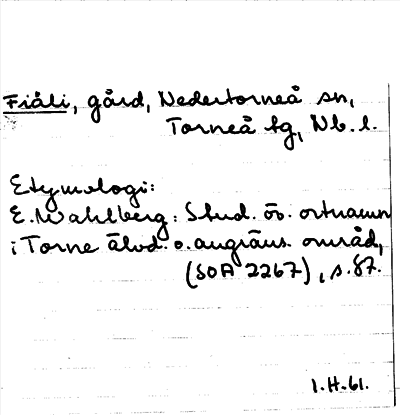 Fiáli, gård, Nedertorneå sn,
Torneå tg, Nb. l.
Etymologi:
E. Wahlberg: Stud. öv. ortnamn
i Torne älvd. o. angräns. område,
(SOA 2267), s. 87.
1.H.61.